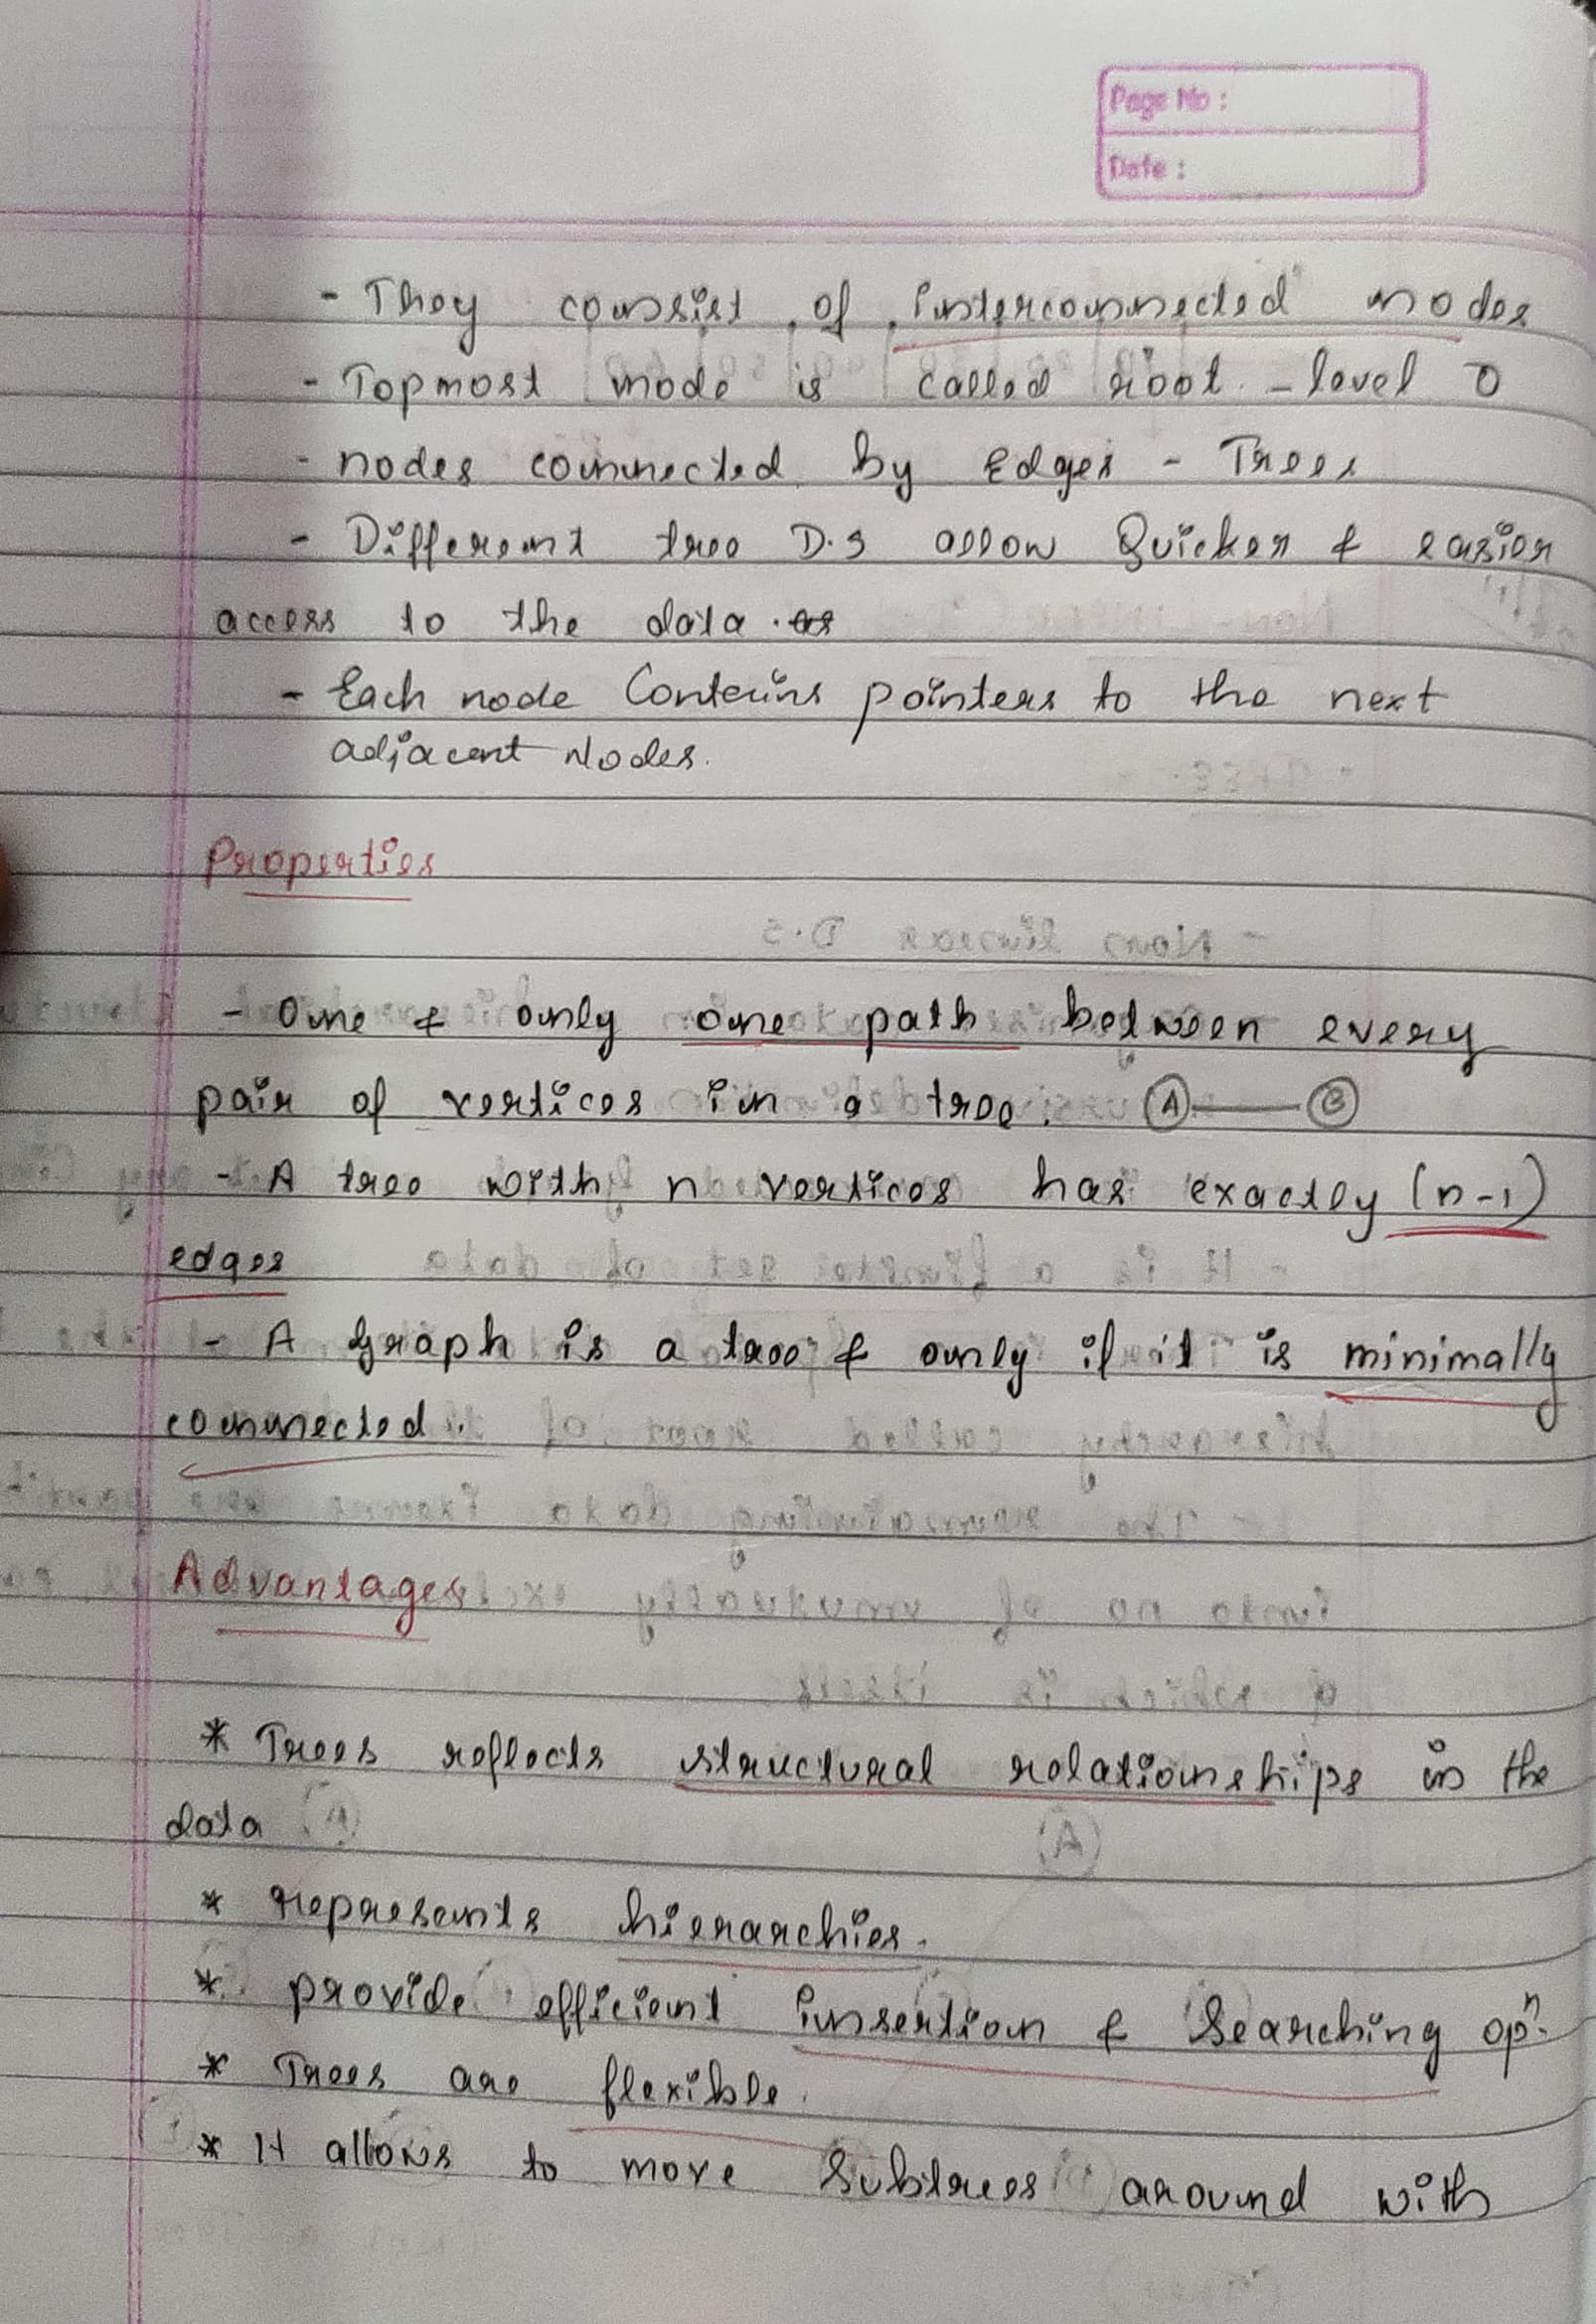 Page No :
Date :
- They consist of interconnected nodes
- Topmost node is called root - level 0
- nodes connected by Edges - Trees
- Different tree D.S allow Quicker & easier
access to the data. as
- Each node Contains pointers to the next
adjacent Nodes.
Properties
- One & only one path between every
pair of vertices in a tree. A B
- A tree with n vertices has exactly (n-1)
edges
- A Graph is a tree & only if it is minimally
connected.
Advantages
* Trees reflects structural relationships in the
data
* represents hierarchies.
* provide efficient insertion & Searching opn.
* Trees are flexible.
* It allows to move Subtrees around with